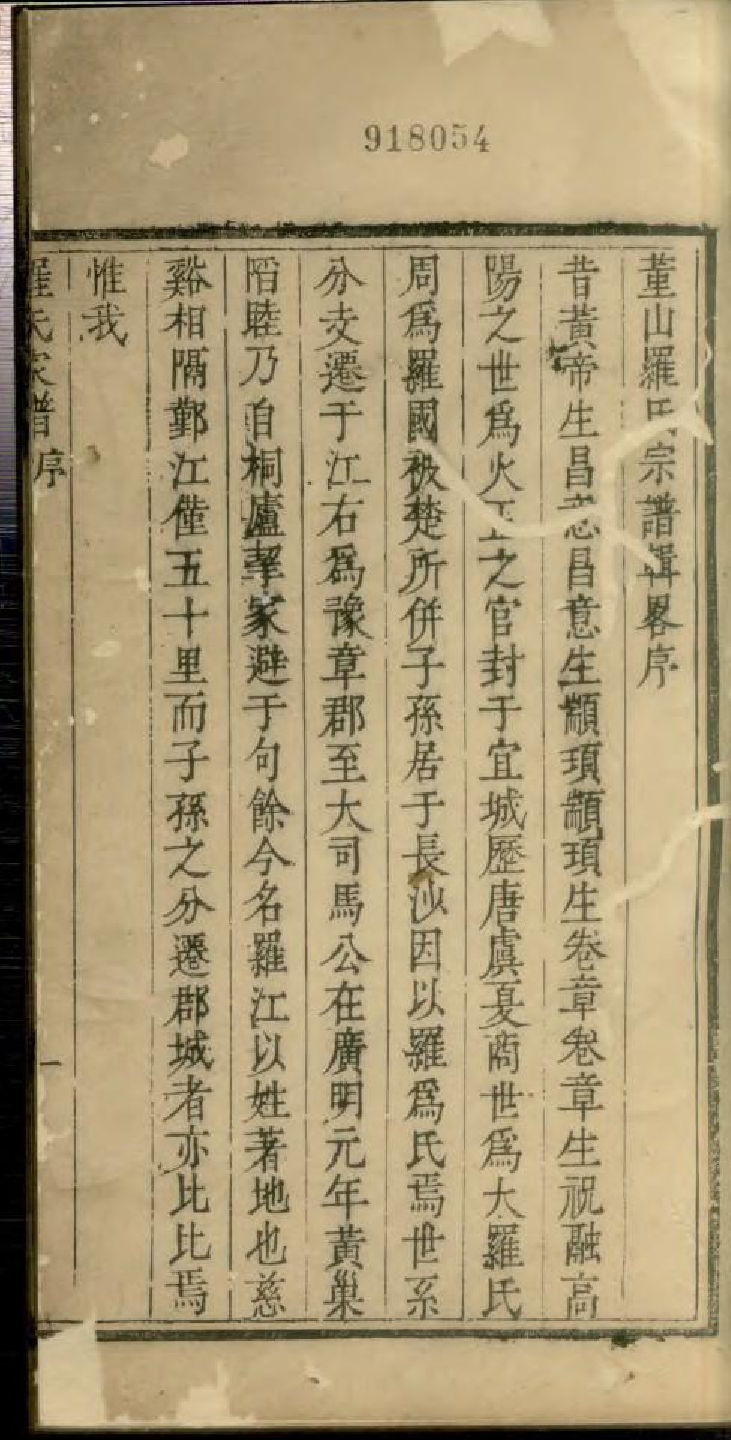 918054
董山羅氏宗譜輯畧序
昔黃帝生昌意昌意生顓頊顓頊生卷章卷章生祝融高
陽之世爲火正之官封于宜城歷唐虞夏商世爲大羅氏
周爲羅國被楚所併子孫居于長沙因以羅爲氏焉世系
分支遷于江右爲豫章郡至大司馬公在廣明元年黃巢
陷睦乃自桐廬挈家避于句餘今名羅江以姓著地也慈
谿相隔鄞江僅五十里而子孫之分遷郡城者亦比比焉
惟我
羅氏家譜序
一